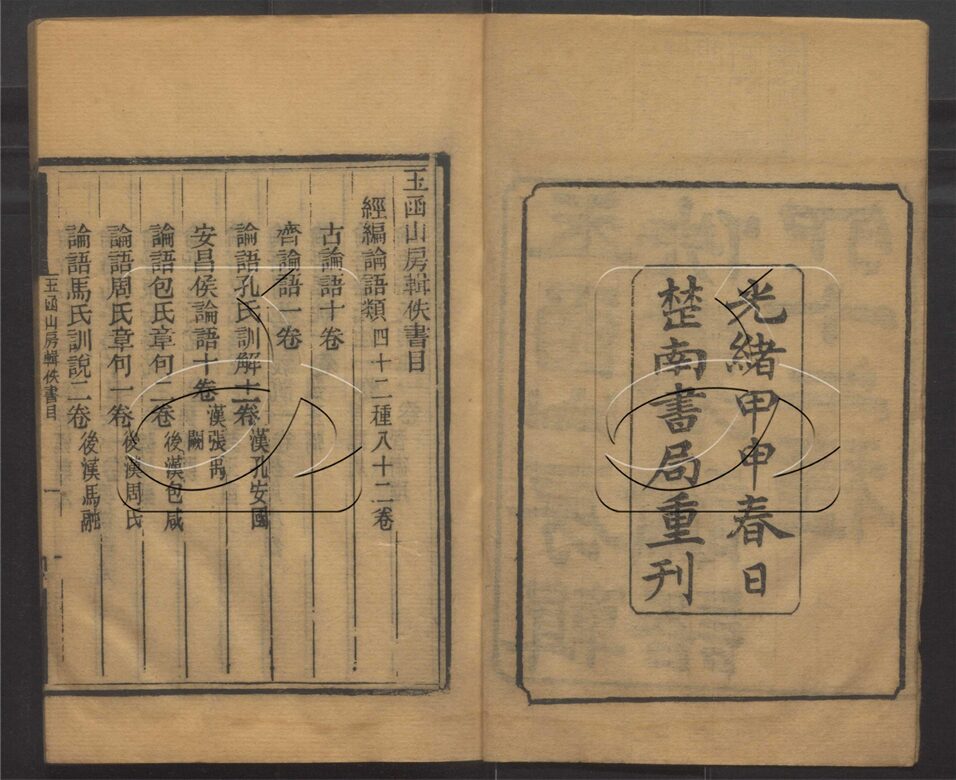 光緒甲申春日
楚南書局重刊
玉函山房輯佚書目
經編論語類四十二種八十二卷
古論語十卷
齊論語一卷
論語孔氏訓解十一卷漢孔安國
安昌侯論語十卷漢張禹
闕
論語包氏章句二卷後漢包咸
論語周氏章句一卷後漢周氏
論語馬氏訓說二卷後漢馬融
玉函山房輯佚書目
一